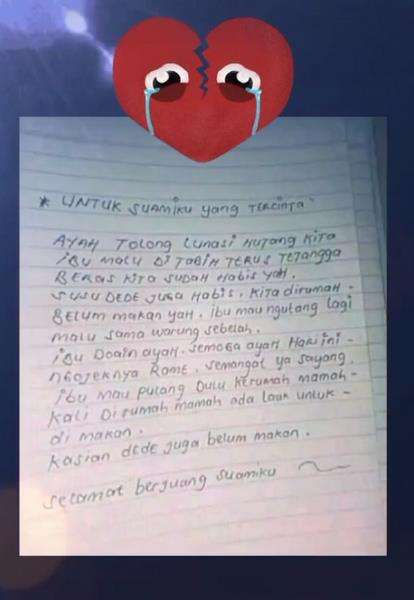 * UNTUK SUAMIKU yang TERCINTA
AYAH TOLONG LUNASI HUTANG KITA
iBU MALU DI TAGIH TERUS TETANGGA
BERAS KITA SUDAH HABIS YAH.
SUSU DEDE JUGA HABIS. KITA DIRUMAH.
BELUM MAKAN YAH. ibu mau ngutang lagi
malu sama warung sebelah.
iBU DOAIN AYAH. SEMOGA AYAH HARI ini -
NGOJEKNYA RAME. SEMANGAT YA SAYANG.
iBU MAU PULANG DULU KERUMAH MAMAH -
KALI DIRUMAH MAMAH ADA LAUK UNTUK -
di makan.
kasian dede juga belum makan.
selamat berjuang suamiku